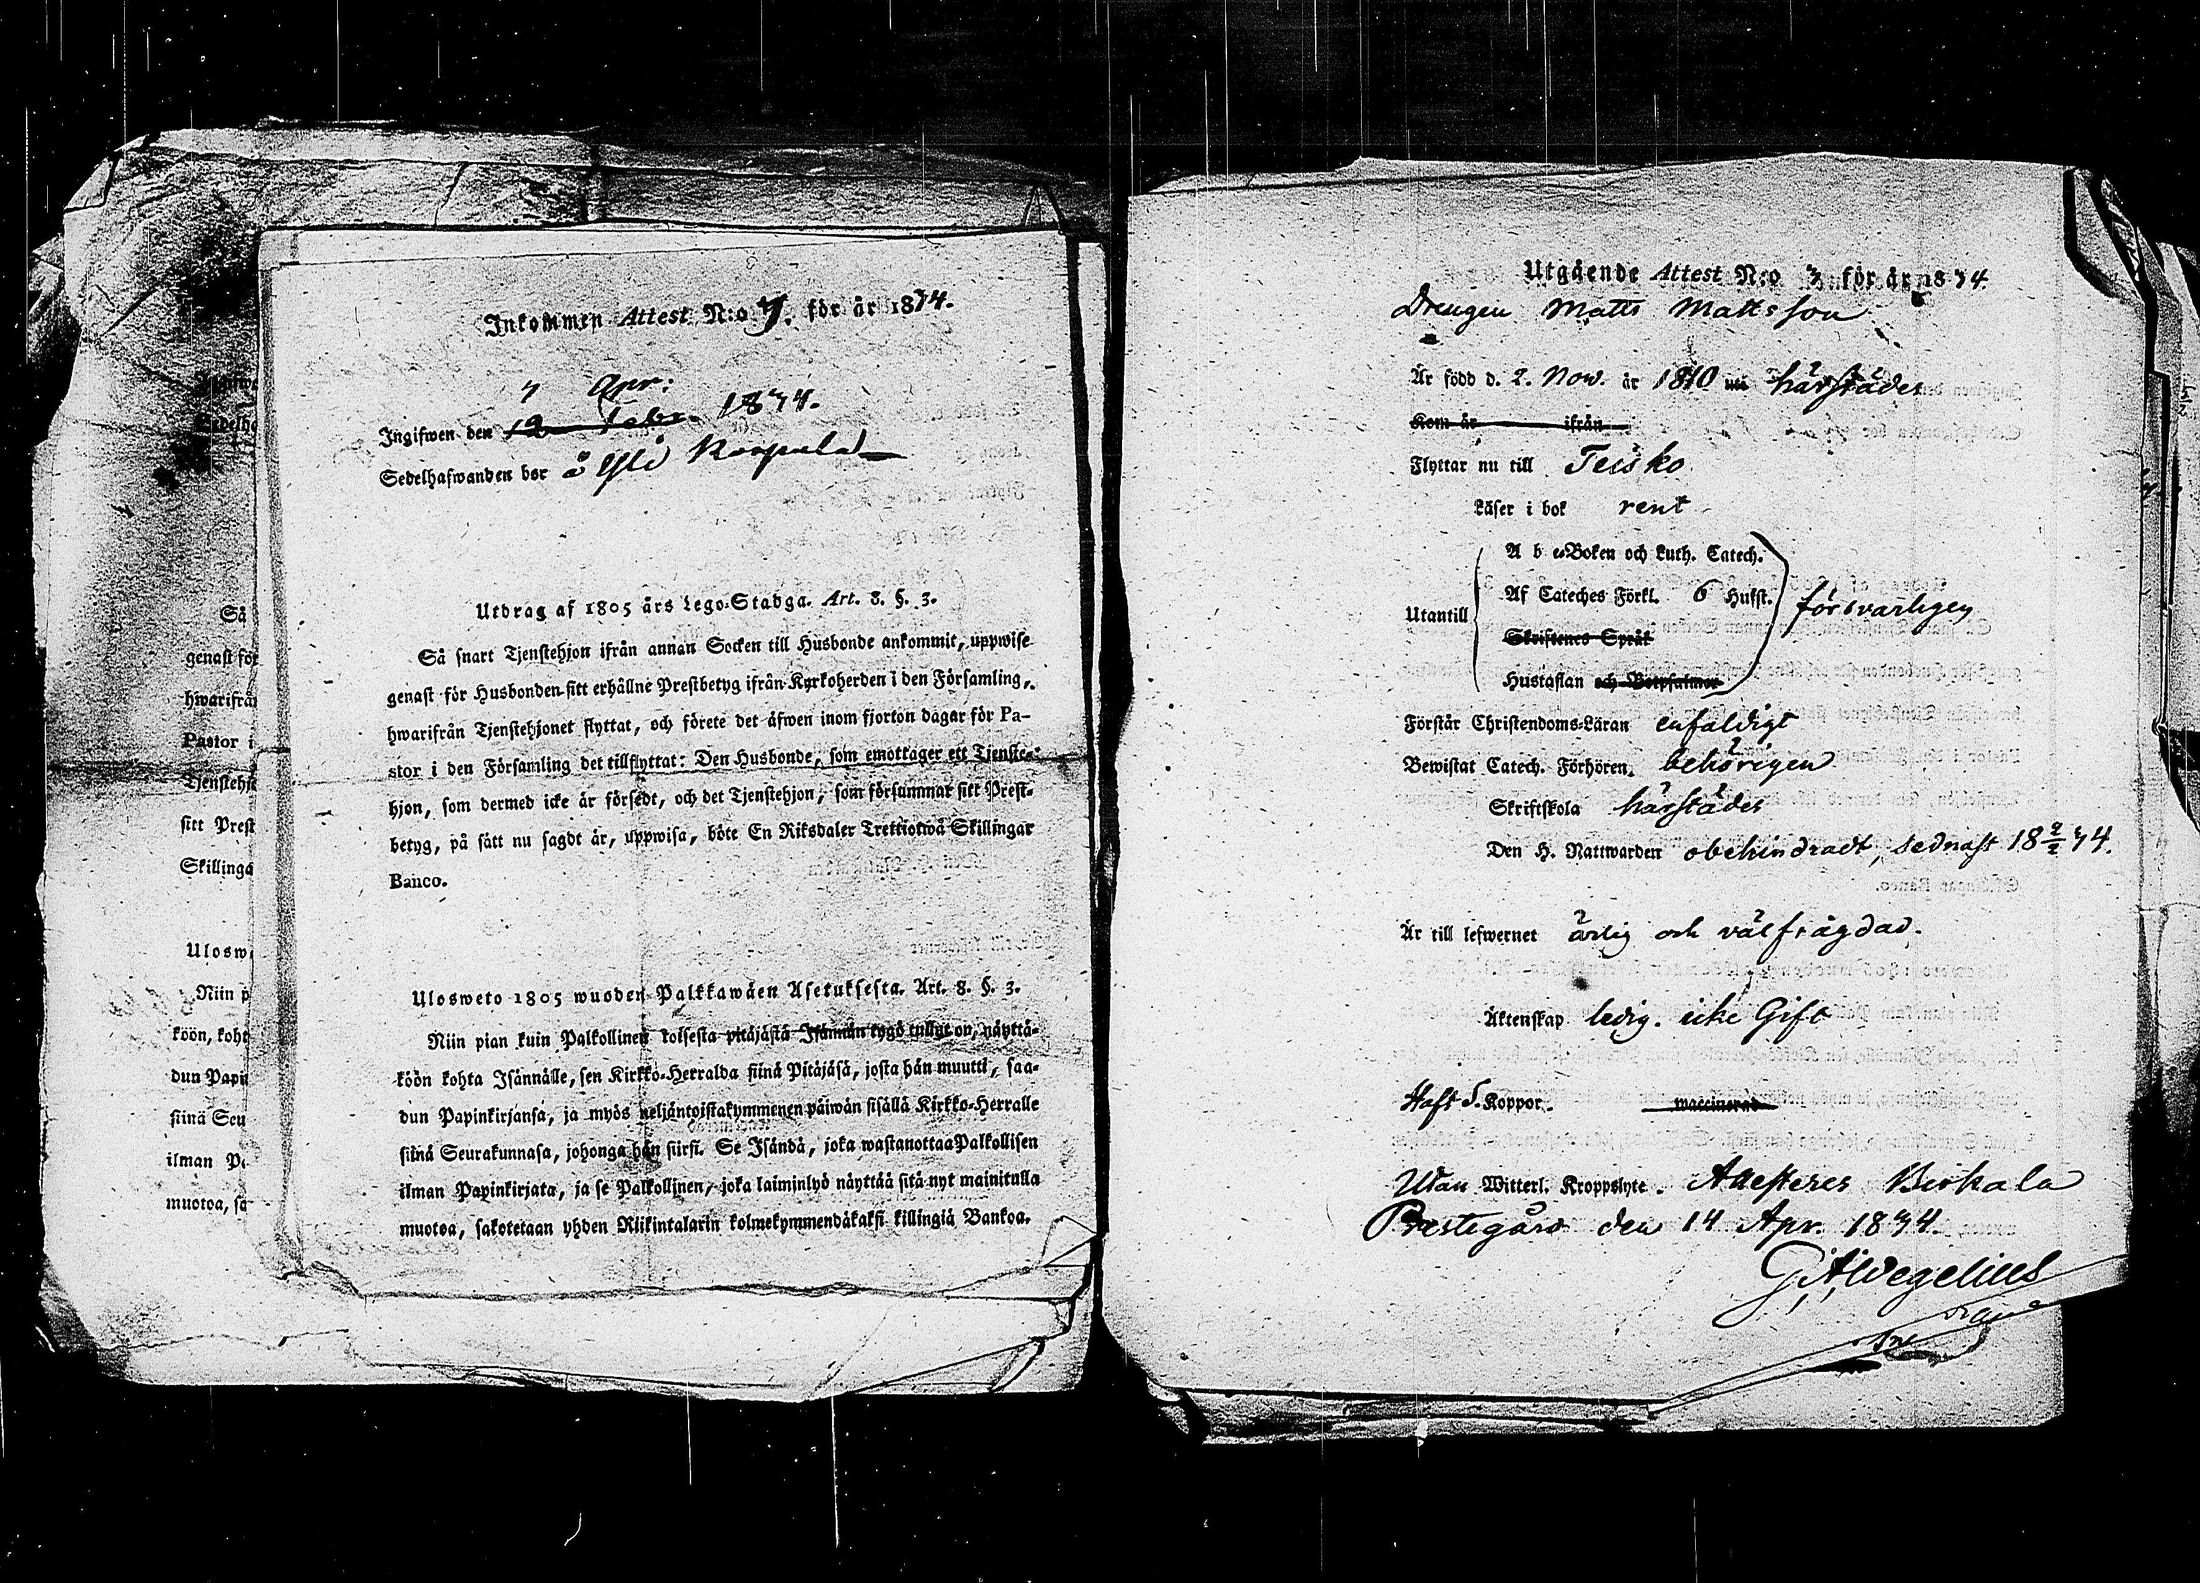 Inkommen Attest N:o 7. för år 1834.
7 Apr:
Ingifwen den 12 Febr. 1834.
Sedelhafwanden bor å Yli
Utdrag af 1805 års Lego-Stadga. Art. 8. §. 3.
Så snart Tjenstehjon ifrån annan Socken till Husbonde ankommit, uppwise
genast för Husbonden sitt erhållne Prestbetyg ifrån Kyrkoherden i den Församling,
hwarifrån Tjenstehjonet flyttat, och förete det äfwen inom fjorton dagar för Pa-
stor i den Församling det tillflyttat: Den Husbonde, som emottager ett Tjenste-
hjon, som dermed icke är försedt, och det Tjenstehjon, som försummar sitt Prest-
betyg, på sätt nu sagdt är, uppwisa, böte En Riksdaler Trettiotwå Skillingar
Banco.
Ulosweto 1805 wuoden Palkkawäen Asetuksesta. Art. 8. §. 3.
Niin pian kuin Palkollinen toisesta pitäjästä Isännän tygö tullut on, näyttä-
köön kohta Isännälle, sen Kirkko-Herralda siinä Pitäjäsä, josta hän muutti, saa-
dun Papinkirjansa, ja myös neljäntoistakymmenen päiwän sisällä Kirkko-Herralle
siinä Seurakunnasa, johonga hän siirsi. Se Isändä, joka wastanottaa Palkollisen
ilman Papinkirjata, ja se Palkollinen, joka laiminlyö näyttää sitä nyt mainitulla
muotoa, sakotetaan yhden Riikintalarin kolmekymmendäkaksi killingiä Bankoa.
Så
genast för
hwarifrån
Pastor i
Tjenstehj
sitt Prest
Skillinga
Ulosw
Niin p
köön, koht
dun Papi
siinä Seu
ilman Pa
muotoa, sa
Utgående Attest N:o 7 för år 1834
Drengen Matts Mattsson
Är född d. 2. Nov. år 1810 härstädes
Kom år ifrån
Flyttar nu till Teisko
Läser i bok rent
A b c-Boken och Luth. Catech.
Af Cateches Förkl. 6 Hufst.
Utantill försvarligen
Skriftenes Språk
Hustaflan och Botpsalmer
Förstår Christendoms-Läran enfaldigt
Bewistat Catech. Förhören behörigen
Skriftskola härstädes
Den H. Nattwarden obehindradt, sednast 18 2/2 34.
Är till lefwernet ärlig och välfrägdad.
Äktenskap ledig. icke Gift
Haft S. Koppor. waccinerad
Utan Witterl. Kroppslyte. Attesteres Birkala
Prestegård den 14 Apr. 1834.
G. A. Wegelius